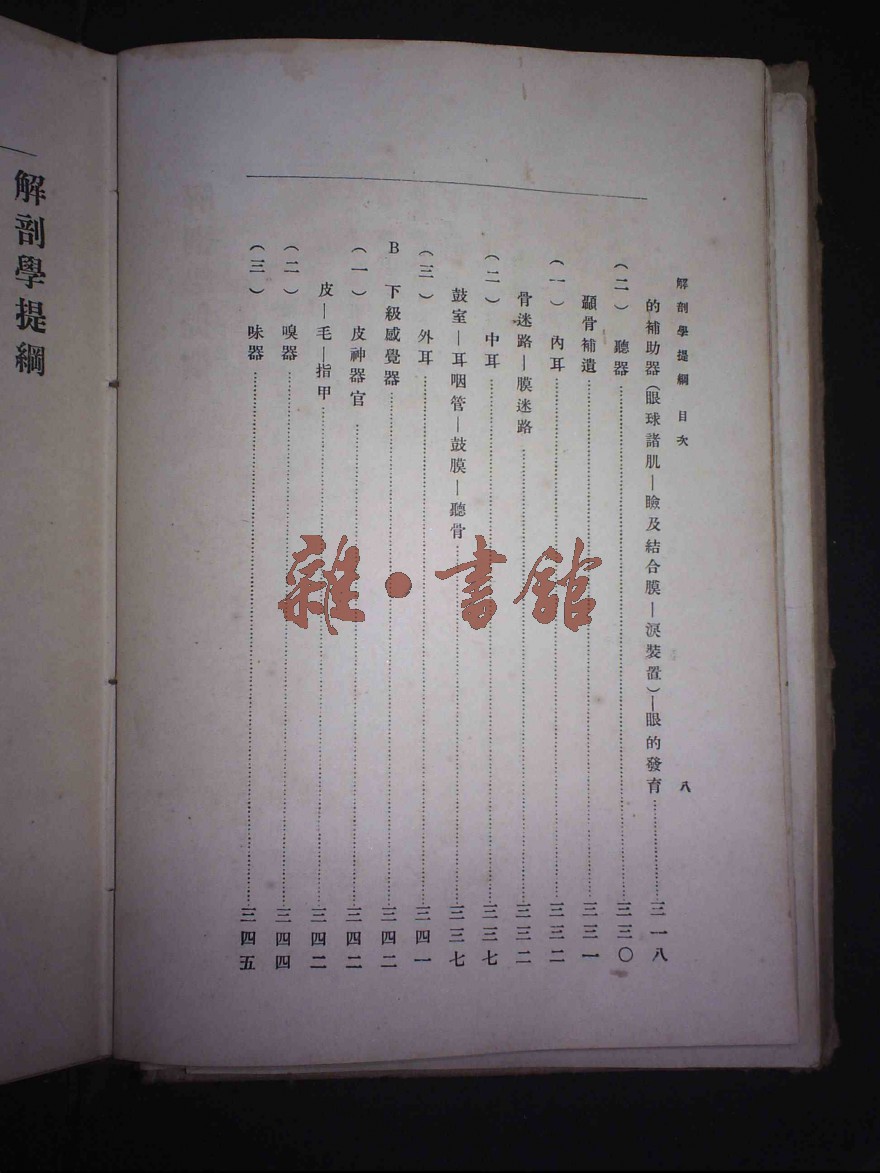 解剖學提綱 目次 八
的補助器(眼球諸肌—瞼及結合膜—淚裝置)—眼的發育……三一八
(二) 聽器……三三〇
顳骨補遺……三三一
(一) 內耳……三三二
骨迷路—膜迷路……三三二
(二) 中耳……三三七
鼓室—耳咽管—鼓膜—聽骨……三三七
(三) 外耳……三四一
B 下級感覺器……三四二
(一) 皮神器官……三四二
皮—毛—指甲……三四二
(二) 嗅器……三四四
(三) 味器……三四五
解剖學提綱
雜·書館